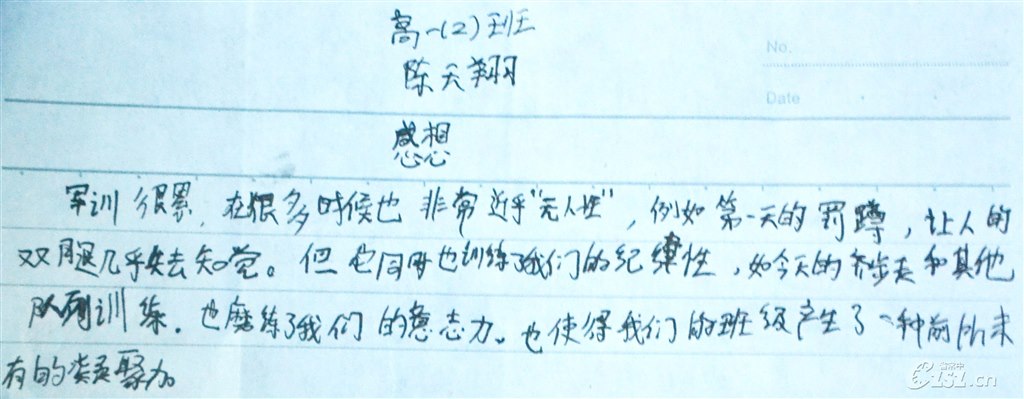 高一(2)班
No.
陈天翔
Date
感想
军训很累,在很多时候也非常近乎"无人性",例如第一天的罚蹲,让人的
双腿几乎失去知觉。但它同时也训练了我们的纪律性,如今天的齐步走和其他
队列训练.也磨练了我们的意志力。也使得我们的班级产生了一种前所未
有的凝聚力。
121.cn